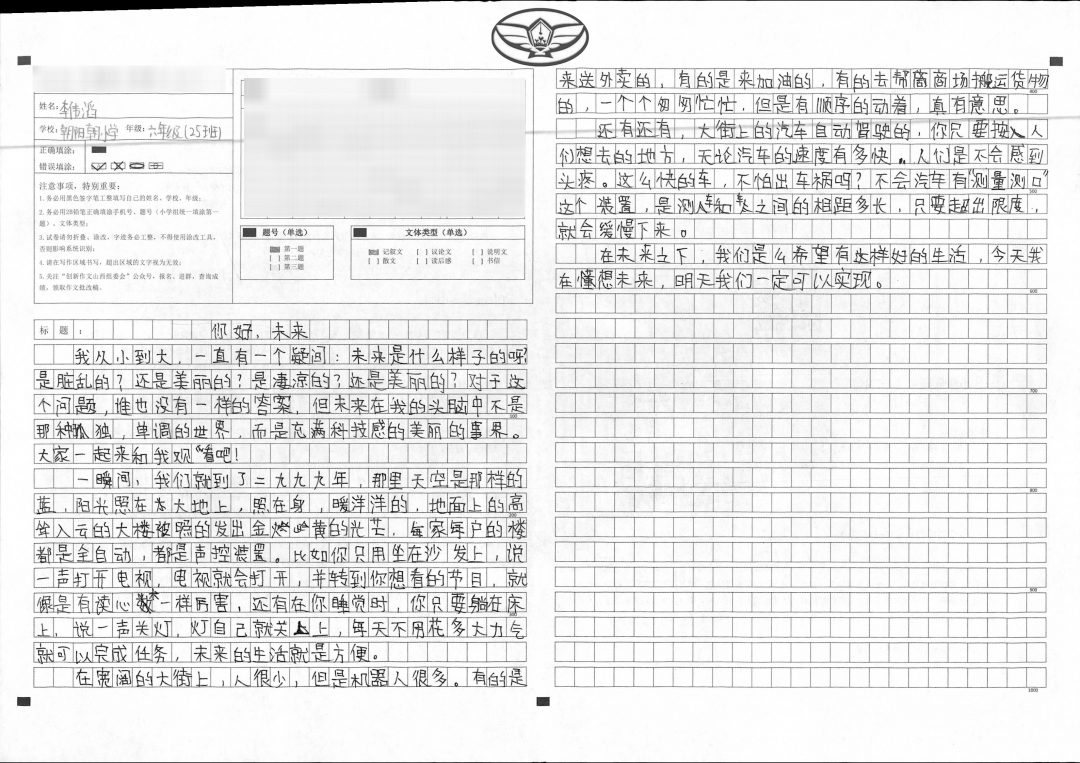 姓名:
学校: 朝阳朝小学 年级: 六年级(25班)
正确填涂:
错误填涂:
注意事项，特别重要:
1.务必用黑色签字笔工整填写自己的姓名，学校，年级;
2.务必用2B铅笔正确填涂手机号、题号（小学组统一填涂第一
题）、文体类型;
3.试卷请勿折叠、涂改，字迹务必工整，不得使用涂改工具，
否则影响系统识别;
4.请在写作区域书写，超出区域的文字视为无效;
5.关注“创新作文山西组委会”公众号，报名、进群，查询成
绩，领取作文批改稿。
题号（单选）
第一题
[ ] 第二题
[ ] 第三题
文体类型（单选）
记叙文 [ ] 议论文 [ ] 说明文
[ ] 散文 [ ] 读后感 [ ] 书信
标 题: 你好，未来
我从小到大，一直有一个疑问：未来是什么样子的呀?
是脏乱的？还是美丽的？是凄凉的？还是美丽的？对于这
个问题，谁也没有一样的答案，但未来在我的头脑中不是
100
那种孤独，单调的世界，而是充满科技感的美丽的事界。
大家一起来和我观“看吧!
一瞬间，我们就到了二九九九年，那里天空是那样的
蓝，阳光照在大地上，照在身，暖洋洋的，地面上的高
200
耸入云的大楼被照的发出金灿灿黄的光芒，每家每户的楼
都是全自动，都是声控装置。比如你只用坐在沙发上，说
一声打开电视，电视就会打开，并转到你想看的节目，就
像是有读心术一样厉害，还有在你睡觉时，你只要躺在床
300
上，说一声关灯，灯自己就关上，每天不用花多大力气
就可以完成任务，未来的生活就是方便。
在宽阔的大街上，人很少，但是机器人很多。有的是
来送外卖的，有的是来加油的，有的去帮离商场搬运货物
400
的，一个个匆匆忙忙，但是有顺序的动着，真有意思。
还有还有，大街上的汽车自动驾驶的，你只要按入人
们想去的地方，无论汽车的速度有多快。人们是不会感到
头疼。这么快的车，不怕出车祸吗？不会汽车有“测量测口”
500
这个装置，是测人车和车之间的相距多长，只要超出限度，
就会缓慢下来。
在未来之下，我们是么希望有这样好的生活，今天我
在憧想未来，明天我们一定可以实现。
600
700
800
900
1000